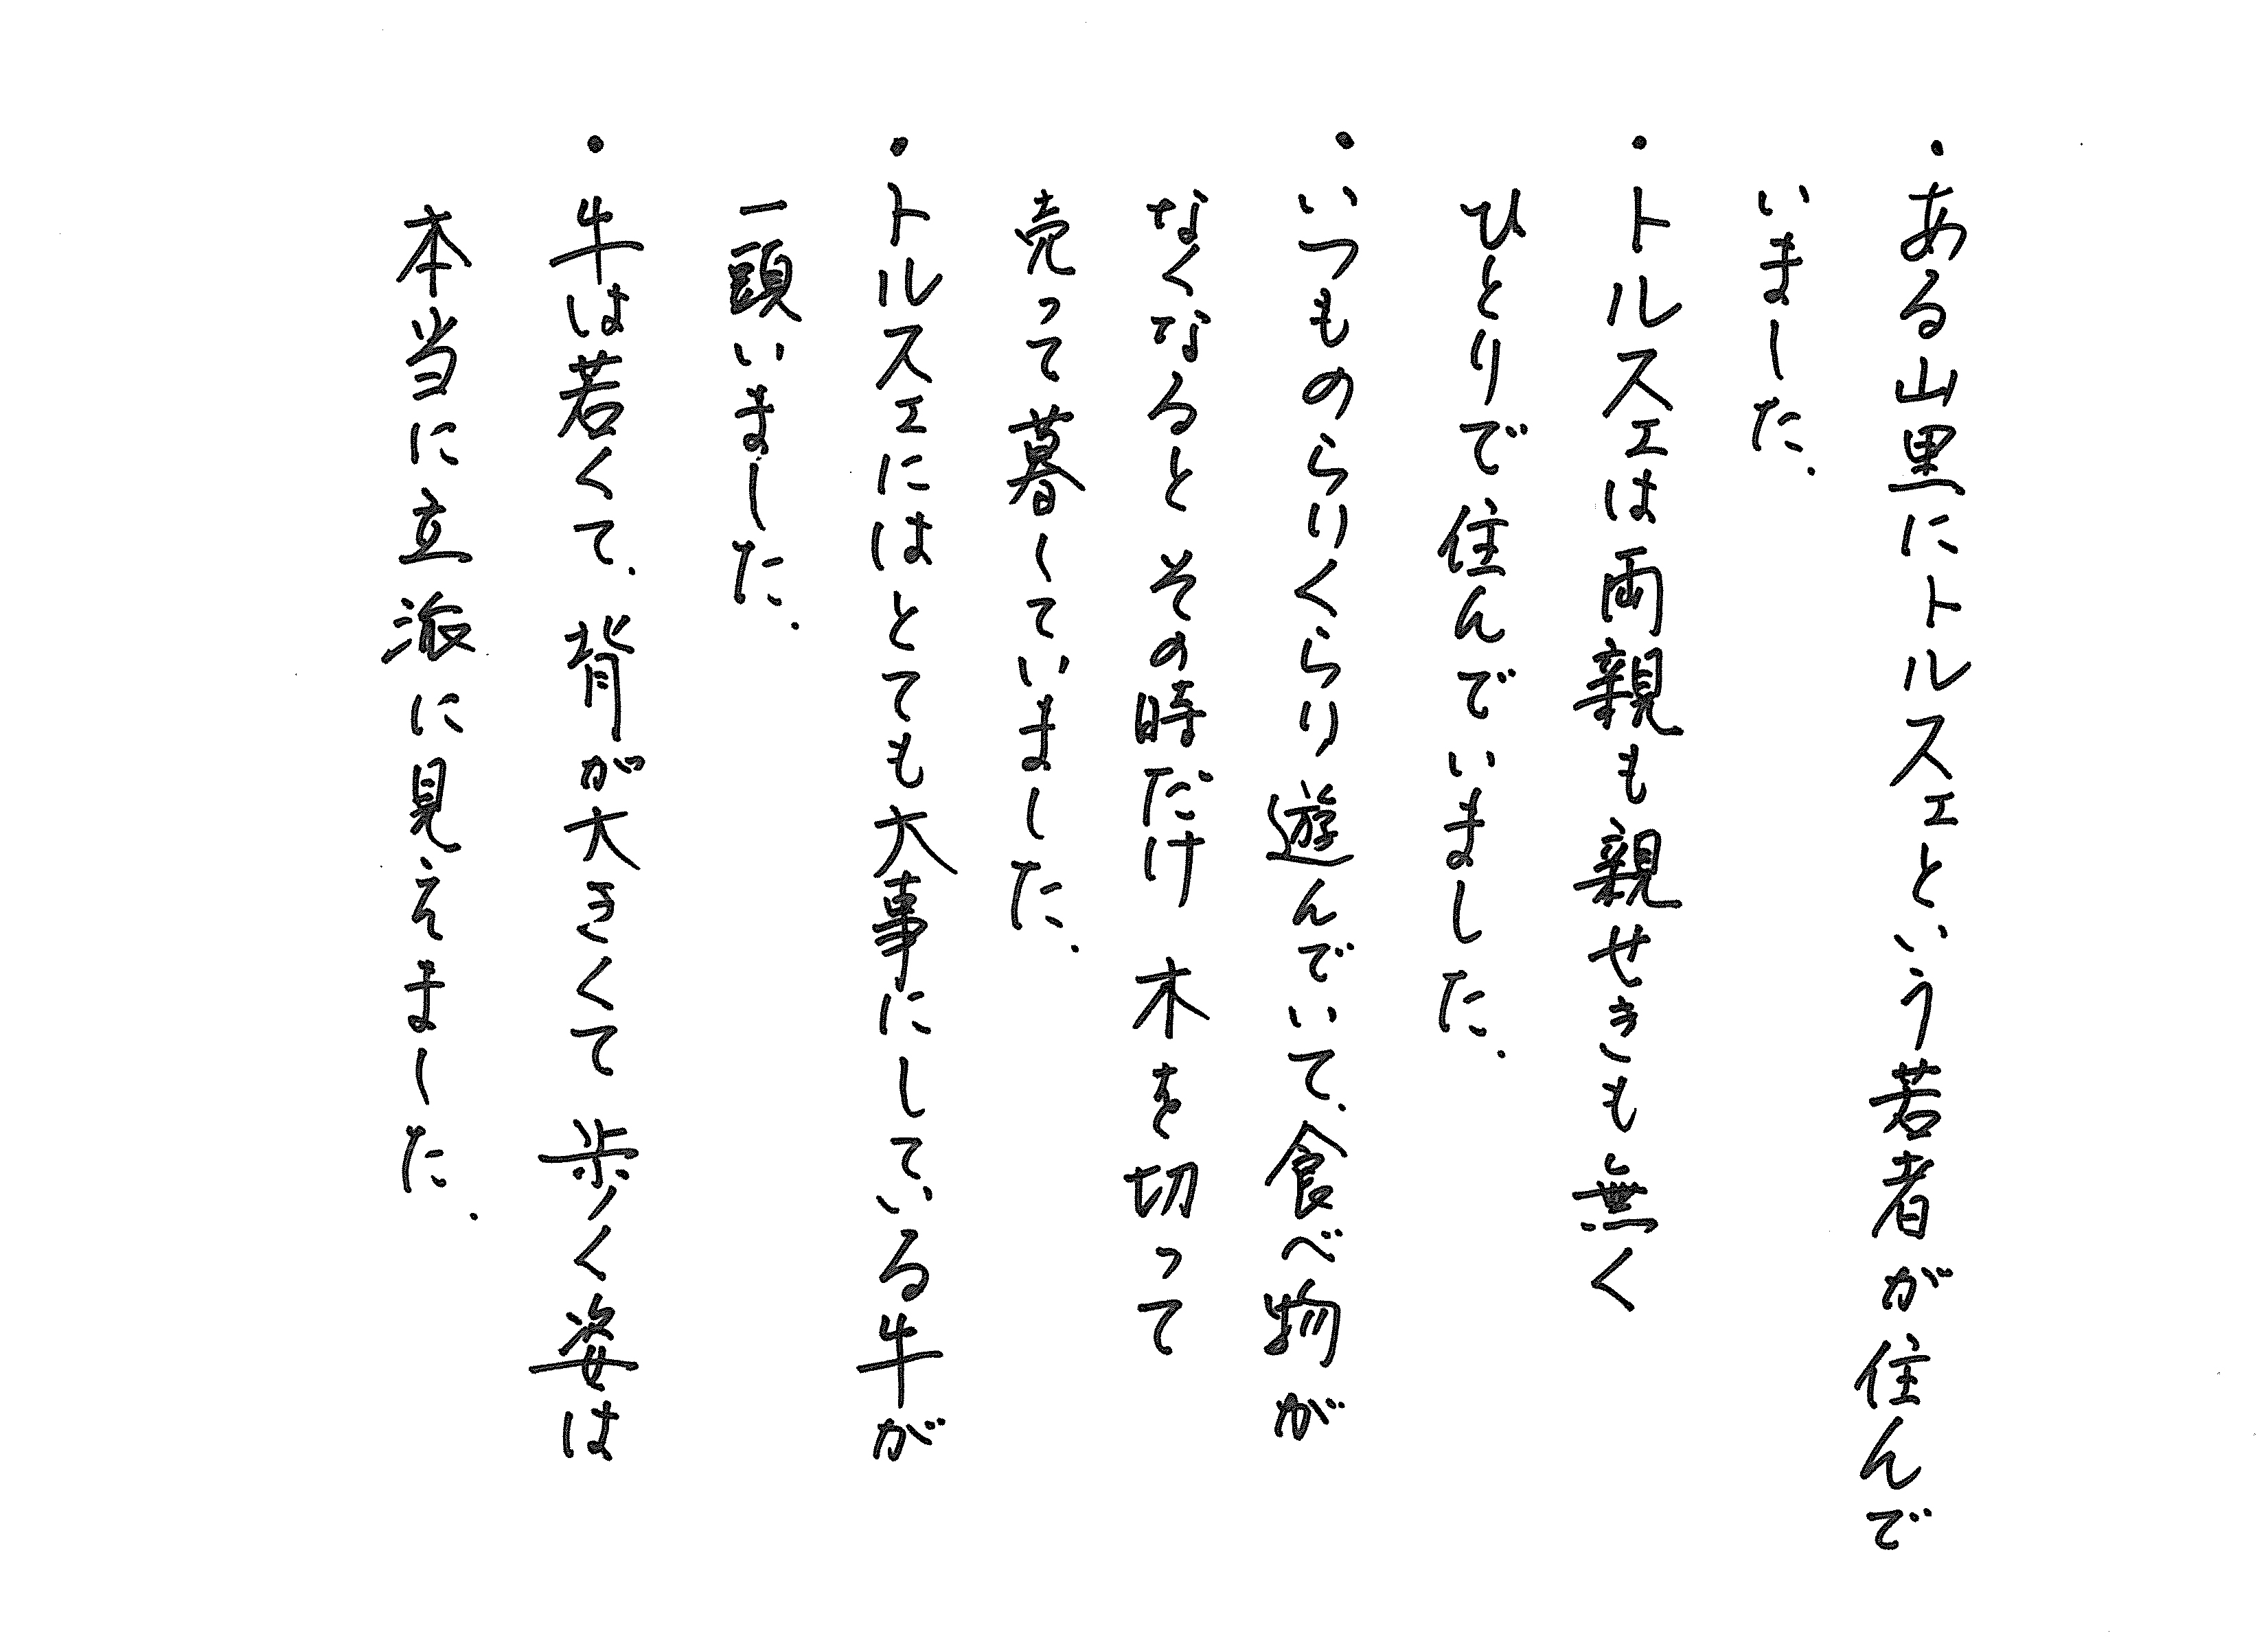 ・ある山里にトルスェという若者が住んで
いました.
・トルスェは両親も親せきも無く
ひとりで住んでいました.
・いつものらりくらり遊んでいて.食べ物が
なくなると その時だけ 木を切って
売って暮していました.
・トルスェにはとても大事にしている牛が
一頭いました.
・牛は若くて.背が大きくて 歩く姿は
本当に立派に見えました.